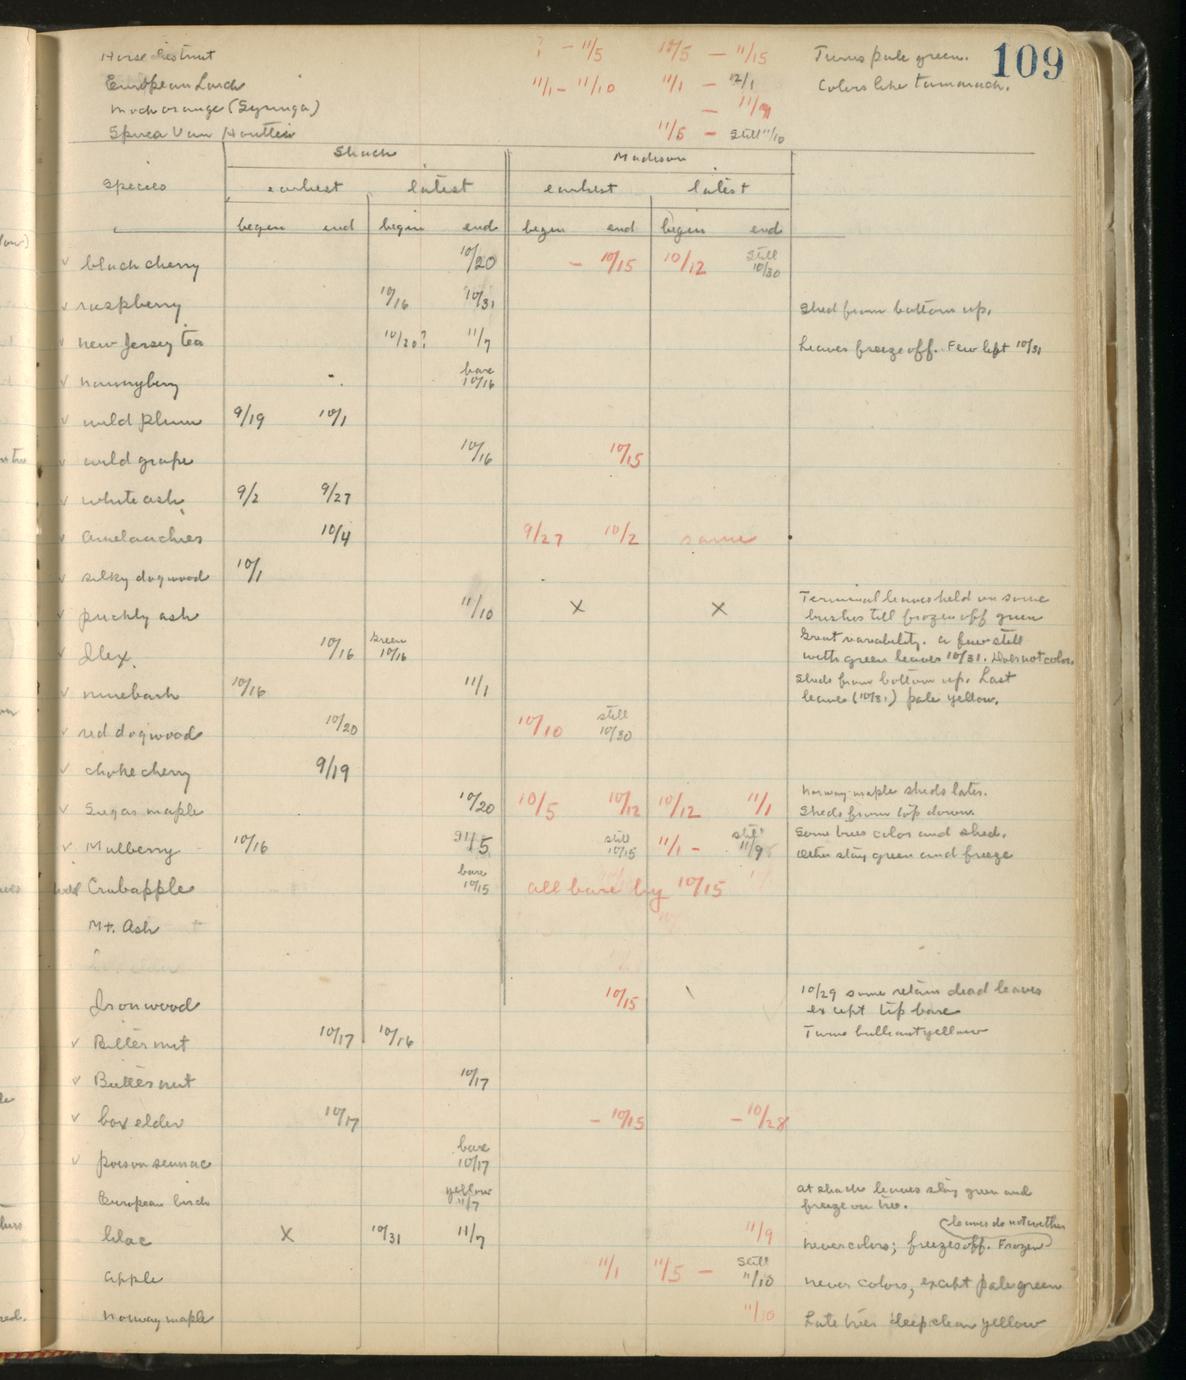 109
Horse chestnut ? - 11/5 10/5 - 11/15 Turns pale green.
European Larch 11/1 - 11/10 11/1 - 12/1 Colors like tamarack.
Mock orange (Syringa) - 11/9
Spirea Van Houttei 11/5 - Still 11/10
Shack Madison
Species earliest latest earliest latest
begin end begin end begin end begin end
✓ black cherry 10/20 - 10/15 10/12 Still 10/30
✓ raspberry 10/16 10/31 Shed from bottom up.
✓ new Jersey tea 10/20? 11/7 Leaves freeze off. Few left 10/31
✓ nannyberry bare 10/16
✓ wild plum 9/19 10/1
✓ wild grape 10/16 10/15
✓ white ash 9/2 9/27
✓ amelanchier 10/4 9/27 10/2 same
✓ silky dogwood 10/1
✓ prickly ash 11/10 X X Terminal leaves held on some
bushes till frozen off green
✓ Ilex. 10/16 green 10/16 Great variability. a few still
with green leaves 10/31. Does not color.
✓ ninebark 10/16 11/1 Sheds from bottom up. Last
leaves (10/31) pale yellow.
✓ red dogwood 10/20 10/10 still 10/30
✓ choke cherry 9/19
✓ Sugar maple 10/20 10/5 10/12 10/12 11/1 Norway maple sheds later.
Sheds from top down.
✓ Mulberry 10/16 11/5 still 10/15 11/1 - still 11/9 Some trees color and shed.
Others stay green and freeze
Crabapple bare 10/15 all bare by 10/15
Mt. Ash
Ironwood 10/15 10/29 some retain dead leaves
except tip bare
✓ Bitternut 10/17 10/16 Turns brilliant yellow
✓ Butternut 10/17
✓ box elder 10/17 - 10/15 - 10/28
✓ poison sumac bare 10/17
European birch yellow 11/7 at shack leaves stay green and
freeze on tree.
lilac X 10/31 11/7 11/9 never colors; freezes off. Frozen
leaves do not wither
apple 11/1 11/5 - Still 11/10 never colors, except pale green
Norway maple 11/10 Late trees deep clear yellow